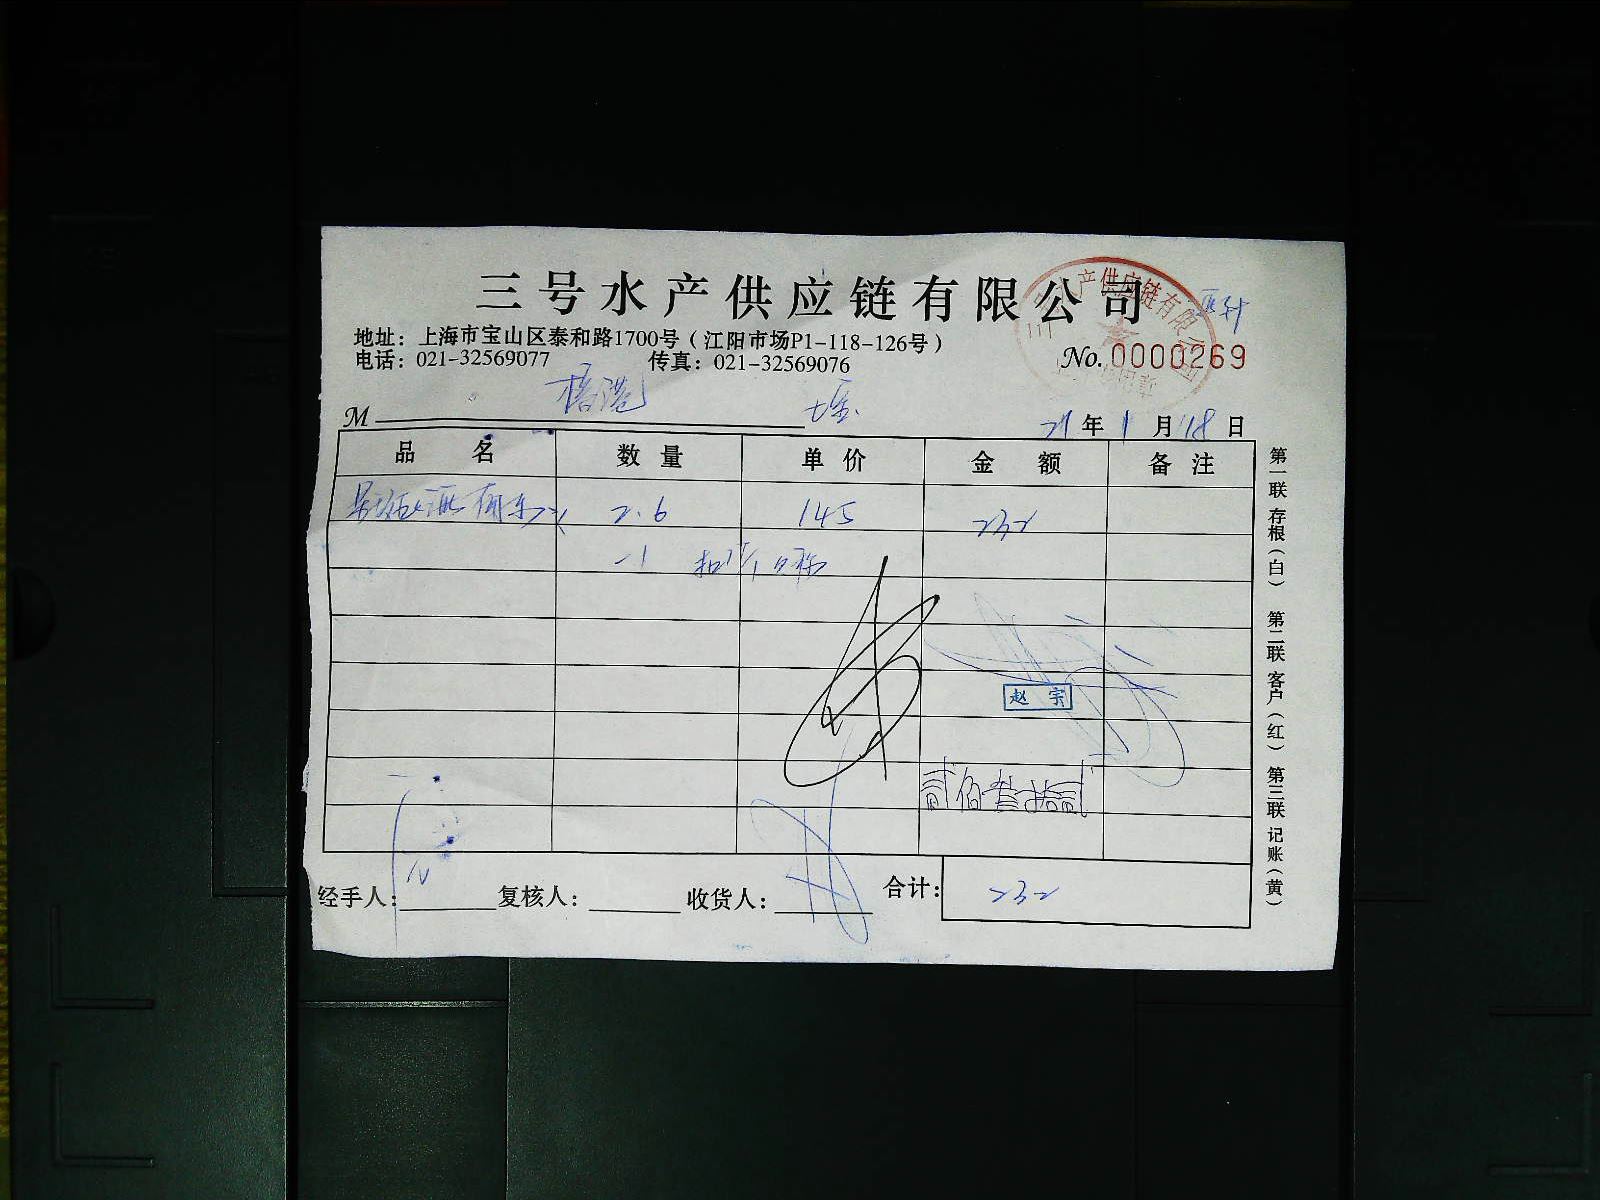 三号水产供应链有限公司
产供应链有限公司
地址：上海市宝山区泰和路1700号（江阳市场P1-118-126号）
电话：021-32569077 传真：021-32569076
No.0000269
M
21年1月18日
品名 数量 单价 金额 备注
2.6 145 232
-1 扣
赵宇
贰佰叁拾贰
经手人： 复核人： 收货人： 合计： 232
第一联 存根（白） 第二联 客户（红） 第三联 记账（黄）